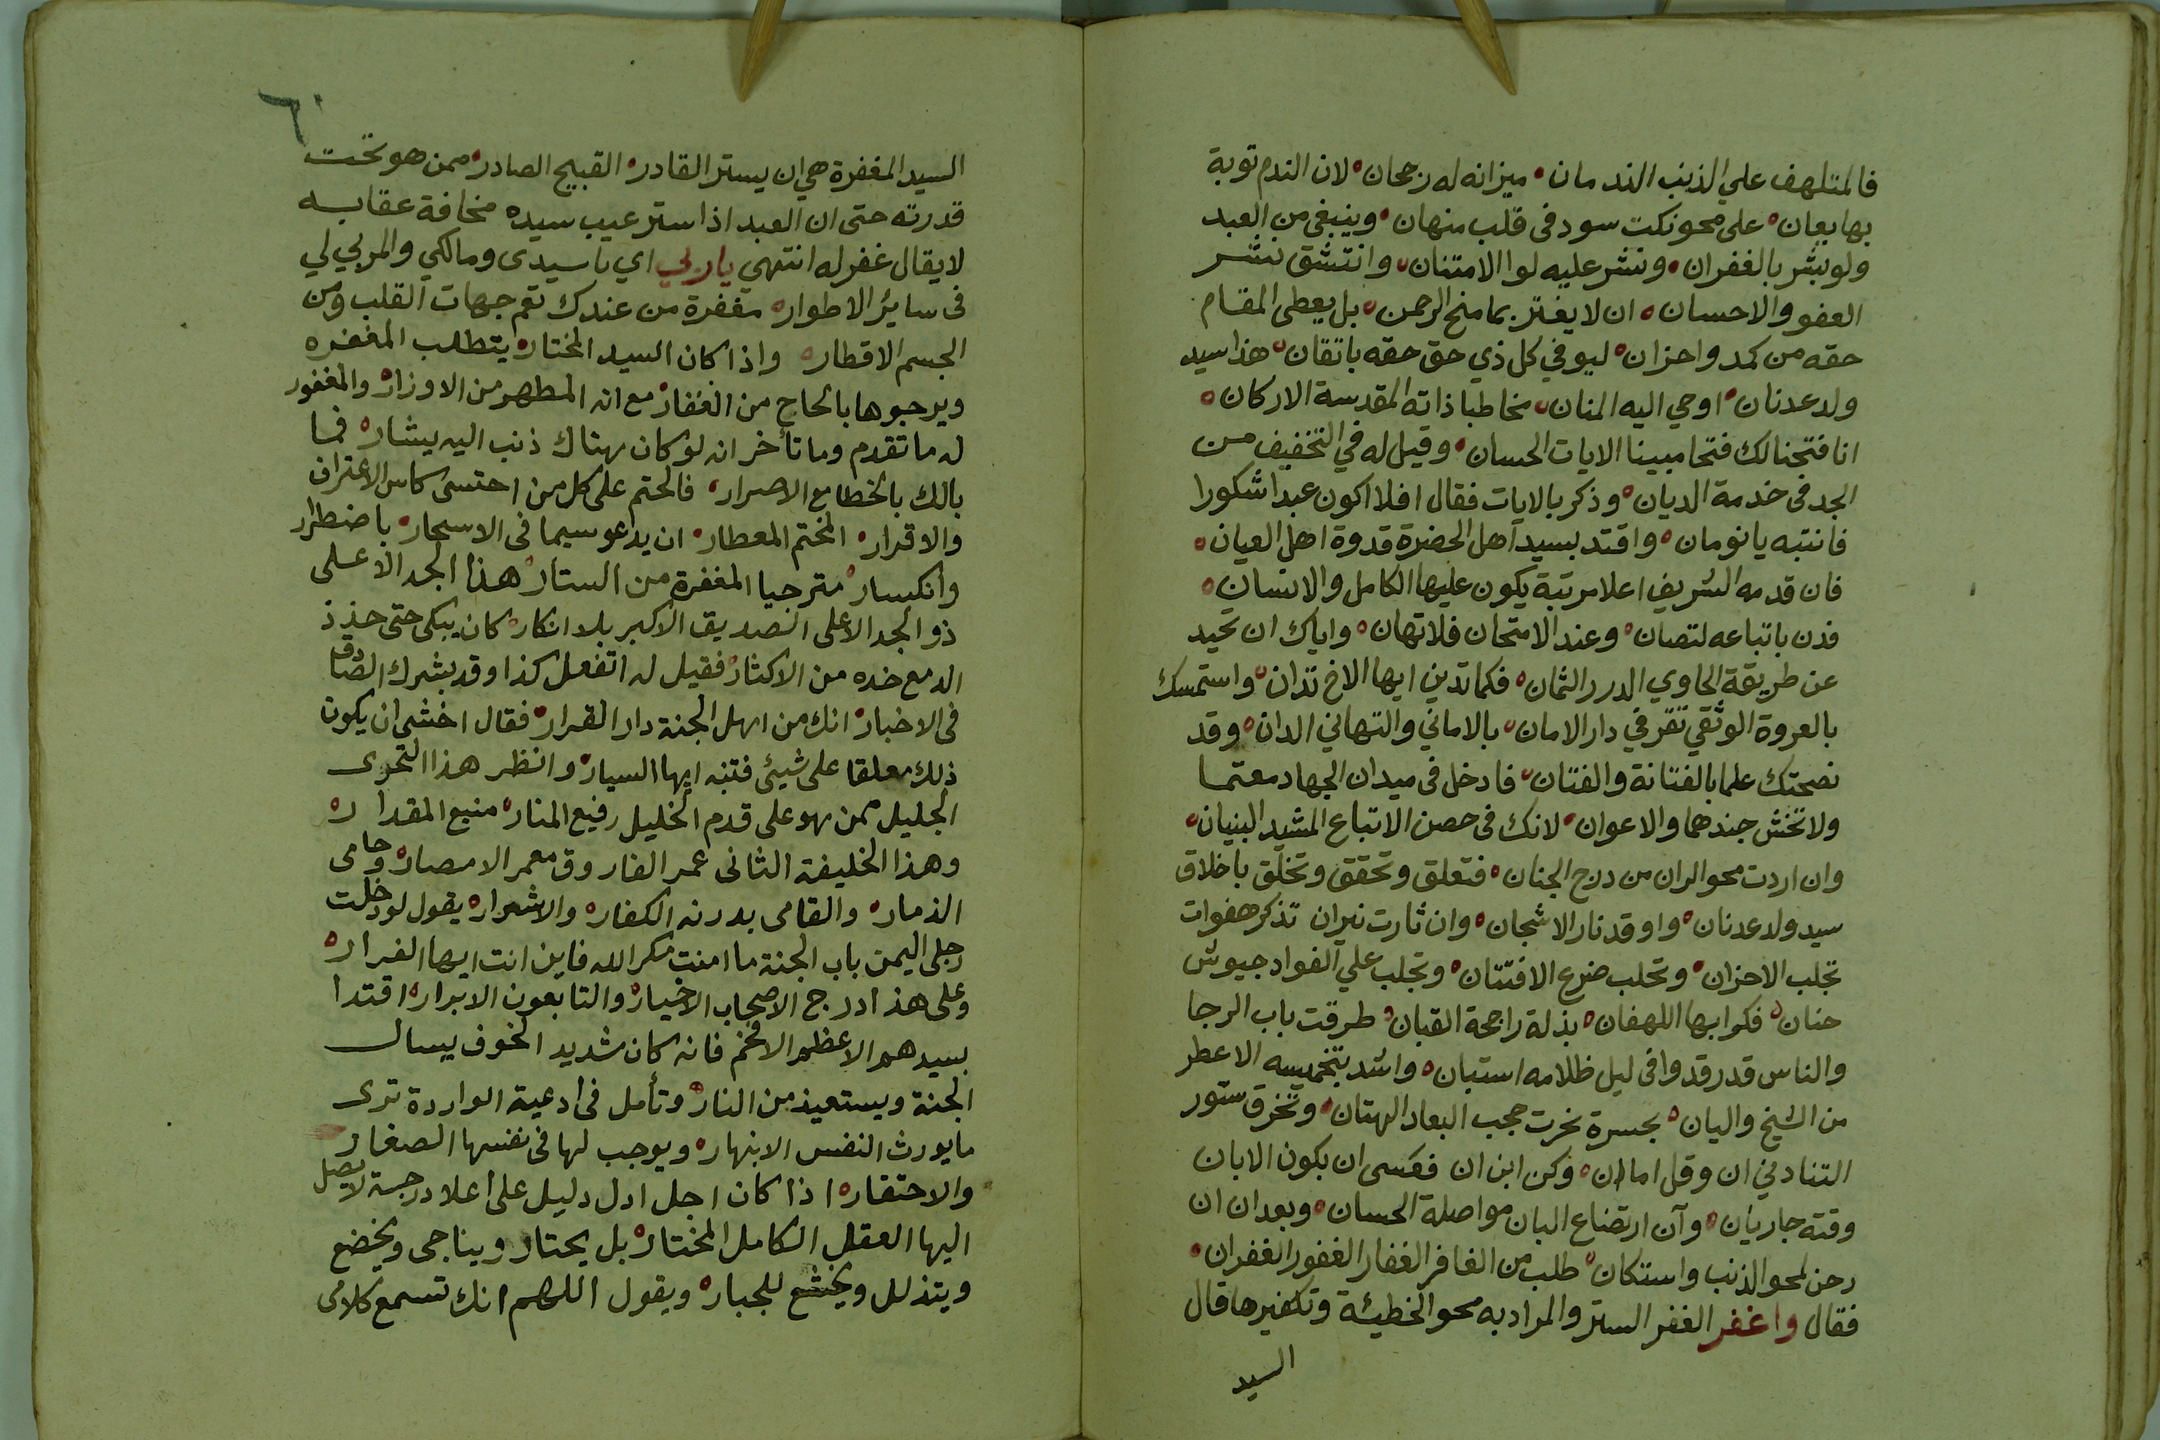 فالمتلهف علي الذنب الندمان ميزانه له رجحان لان الندم توبة
بها يعان على محو نكت سود في قلب منهان وينبغي من العبد
ولو بشر بالغفران ونشر عليه لوا الامتنان وانتشق نشر
العفو والاحسان ان لا يغتر بما منح الرحمن بل يعطي المقام
حقه من كمد واحزان ليوفي كل ذي حق حقه باتقان هذا سيد
ولد عدنان اوحي اليه المنان مخاطبا ذاته المقدسة الاركان
انا فتحنا لك فتحا مبينا الايات الحسان وقيل له في التخفيف من
الجد في خدمة الديان وذكر بالايات فقال افلا اكون عبدا شكورا
فانتبه يا نومان واقتد بسيد اهل الحضرة قدوة اهل العيان
فان قدمه الشريف اعلا مرتبة يكون عليها الكامل والانسان
فدن باتباعه لتصان وعند الامتحان فلا تهان واياك ان تحيد
عن طريقة الحاوي الدرر الثمان فكما تدين ايها الاخ تدان واستمسك
بالعروة الوثقي تقر في دار الامان بالاماني والتهاني الدان وقد
نصحتك علما بالفتانة والفتان فادخل في ميدان الجهاد معتما
ولا تخش جندهما والاعوان لانك في حصن الاتباع المشيد البنيان
وان اردت محو الران من درج الجنان فتعلق وتحقق وتخلق باخلاق
سيد ولد عدنان واوقد نار الاشجان وان ثارت نيران تذكر هفوات
تجلب الاحزان وتحلب ضرع الافتتان وتجلب علي الفواد جيوش
حنان فكم ايها اللهفان بذلة راجحة القبان طرقت باب الرجا
والناس قد رقدوا في ليل ظلامه استبان واشد بتخميسه الاعطر
من الشيخ والبان بجسرة نخرت حجب البعاد الهتان وتخرق ستور
التنادني ان وقل اما ان وكن ابن ان فعسى ان يكون الابان
وقته جاريان وآن ارتضاع البان مواصلة الحسان وبعد ان ان
رحن لمحو الذنب واستكان طلب من الغافر الغفار الغفور الغفران
فقال واغفر الغفر الستر والمراد به محو الخطيئة وتكفيرها قال
السيد
٦٠
السيد المغفرة هي ان يستر القادر القبيح الصادر ممن هو تحت
قدرته حتى ان العبد اذا ستر عيب سيده مخافة عقابه
لا يقال غفر له انتهي يا ربي اي يا سيدى ومالكي والمربي لي
في ساير الاطوار مغفرة من عندك تعم جهات القلب ومن
الجسم الاقطار واذا كان السيد المختار يتطلب المغفره
ويرجوها بالحاح من الغفار مع انه المطهر من الاوزار والمغفور
له ما تقدم وما تأخر انه لو كان هناك ذنب اليه يشار فما
بالك بالخطا مع الاصرار فالحتم على كل من احتسى كاس الاعتراف
والاقرار المختم المعطار ان يدعو سيما في الاسحار باضطرار
وانكسار مترجيا المغفرة من الستار هذا الجد الاعلى
ذو الجد الاعلى الصديق الاكبر بلا انكار كان يبكي حتى خذذ
الدمع خده من الاكثار فقيل له اتفعل كذا وقد بشرك الصادق
في الاخبار انك من اهل الجنة دار القرار فقال اخشى ان يكون
ذلك معلقا على شيئ فتنبه ايها السيار وانظر هذا التحرى
الجليل ممن هو على قدم الخليل رفيع المنار منيع المقدار
وهذا الخليفة الثاني عمر الفاروق معمر الامصار وحامى
الذمار والقامى بدرته الكفار والاشرار يقول لو دخلت
رجلي اليمن باب الجنة ما امنت مكر الله فاين انت ايها الفرار
وعلى هذا درج الاصحاب الاخيار والتابعون الابرار اقتدا
بسيدهم الاعظم الافخم فانه كان شديد الخوف يسال
الجنة ويستعيذ من النار وتأمل في ادعية الواردة ترى
ما يورث النفس الابنهار ويوجب لها في نفسها الصغار
والاحتقار اذا كان اجل ادل دليل على أعلا درجة لا يصل
اليها العقل الكامل المختار بل يحتار ويناجى ويخضع
ويتذلل ويخشع للجبار ويقول اللهم انك تسمع كلامى